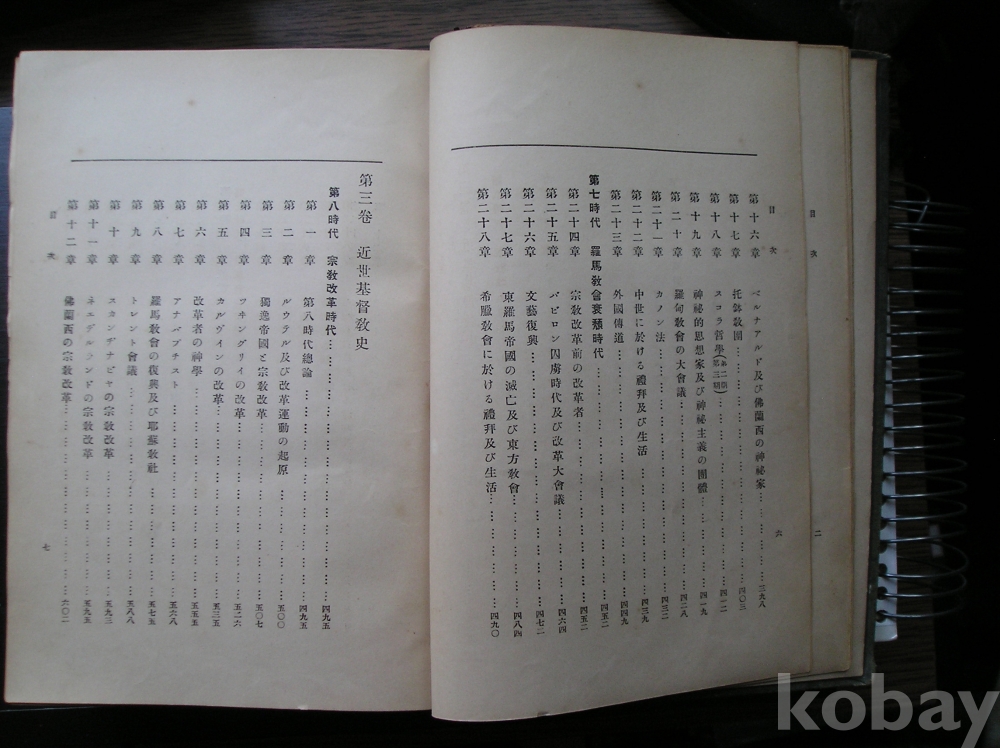 目次
六
第十六章 ベルナアルド及び佛蘭西の神祕家………三九八
第十七章 托鉢敎團………四〇三
第十八章 スコラ哲學(第二期第三期)………四一二
第十九章 神祕的思想家及び神祕主義の團體………四一九
第二十章 羅甸敎會の大會議………四二八
第二十一章 カノン法………四三二
第二十二章 中世に於ける禮拜及び生活………四三九
第二十三章 外國傳道………四四九
第七時代 羅馬敎會衰頽時代………四五二
第二十四章 宗敎改革前の改革者………四五二
第二十五章 バビロン囚虜時代及び改革大會議………四六四
第二十六章 文藝復興………四七二
第二十七章 東羅馬帝國の滅亡及び東方敎會………四八四
第二十八章 希臘敎會に於ける禮拜及び生活………四九〇
第三卷 近世基督敎史
第八時代 宗敎改革時代………四九五
第一章 第八時代總論………四九五
第二章 ルウテル及び改革運動の起原………五〇〇
第三章 獨逸帝國と宗敎改革………五〇七
第四章 ツヰングリイの改革………五二六
第五章 カルヴインの改革………五三五
第六章 改革者の神學………五五五
第七章 アナバプチスト………五六八
第八章 羅馬敎會の復興及び耶蘇敎社………五七五
第九章 トレント會議………五八八
第十章 スカンヂナビヤの宗敎改革………五九三
第十一章 ネエデルランドの宗敎改革………五九五
第十二章 佛蘭西の宗敎改革………六〇二
目次
七
目次
二
kobay